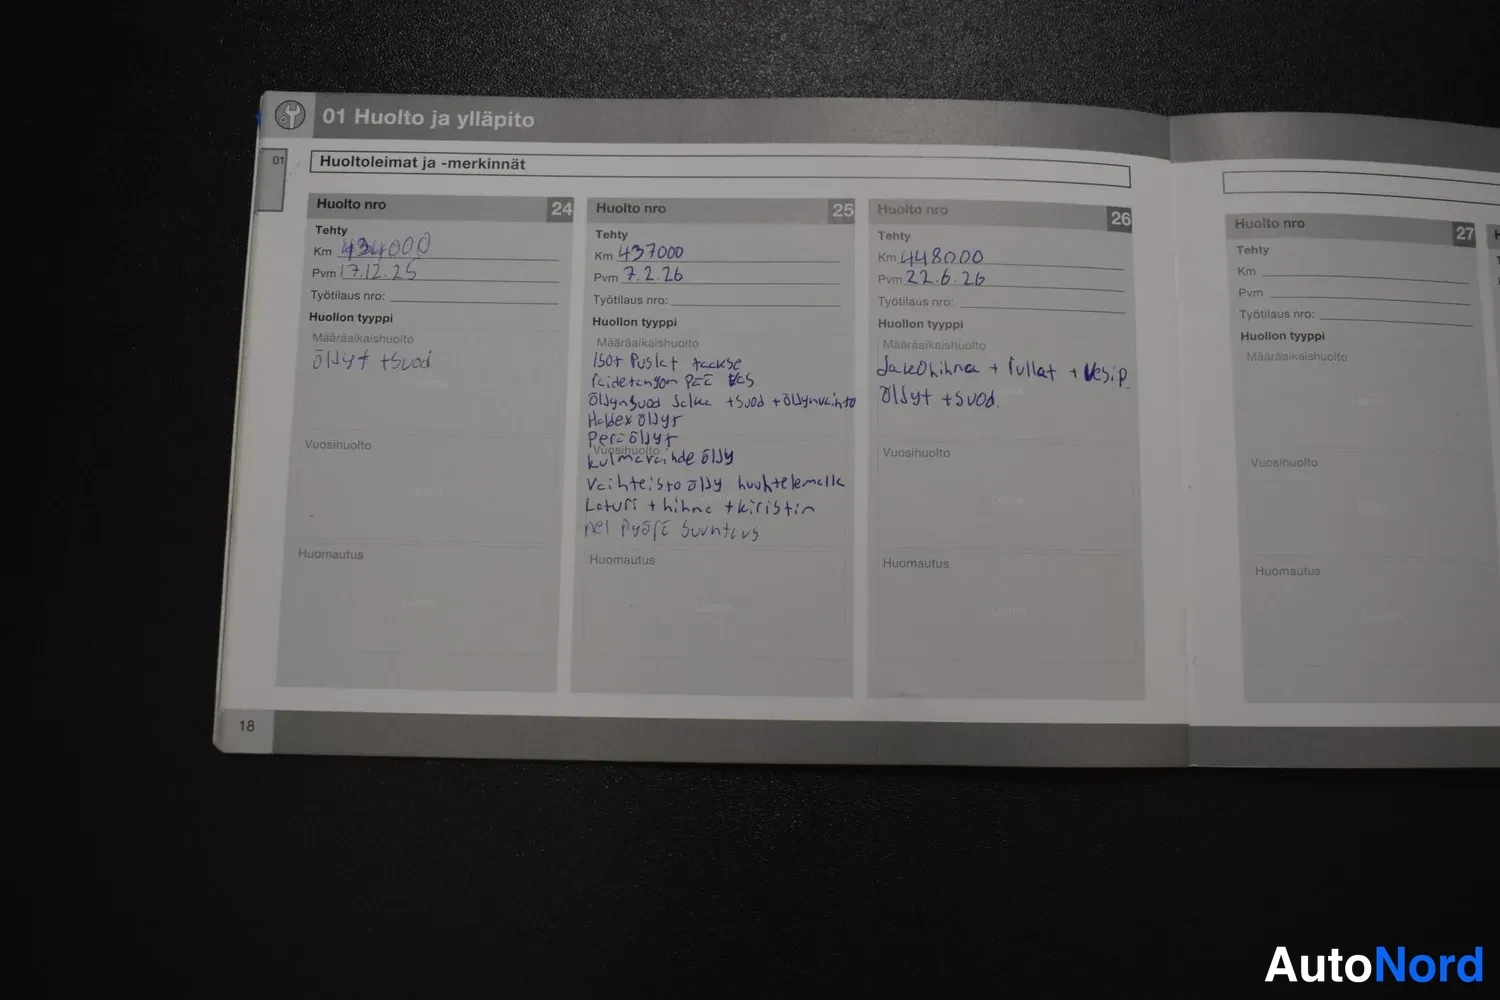 01 Huolto ja ylläpito
01
Huoltoleimat ja -merkinnät
Huolto nro 24
Tehty
Km 434000
Pvm 17.12.25
Työtilaus nro:
Huollon tyyppi
Määräaikaishuolto
Öljyt + suod
Leima
Vuosihuolto
Leima
Huomautus
Leima
Huolto nro 25
Tehty
Km 437000
Pvm 7.2.26
Työtilaus nro:
Huollon tyyppi
Määräaikaishuolto
Isot Puslat taakse
raidetangon pää vas
Öljynsuod Jalka + suod + öljynvaihto
Haldex öljyt
Perä öljyt
Vuosihuolto
kulmavaihde öljy
Vaihteisto öljy huuhtelemalla
Laturi + hihna + kiristin
nel pyörä suuntaus
Huomautus
Leima
Huolto nro 26
Tehty
Km 448000
Pvm 22.6.26
Työtilaus nro:
Huollon tyyppi
Määräaikaishuolto
Jakohihna + rullat + Vesip.
Öljyt + suod.
Vuosihuolto
Leima
Huomautus
Leima
18
Huolto nro 27
Tehty
Km
Pvm
Työtilaus nro:
Huollon tyyppi
Määräaikaishuolto
Leima
Vuosihuolto
Leima
Huomautus
Leima
AutoNord